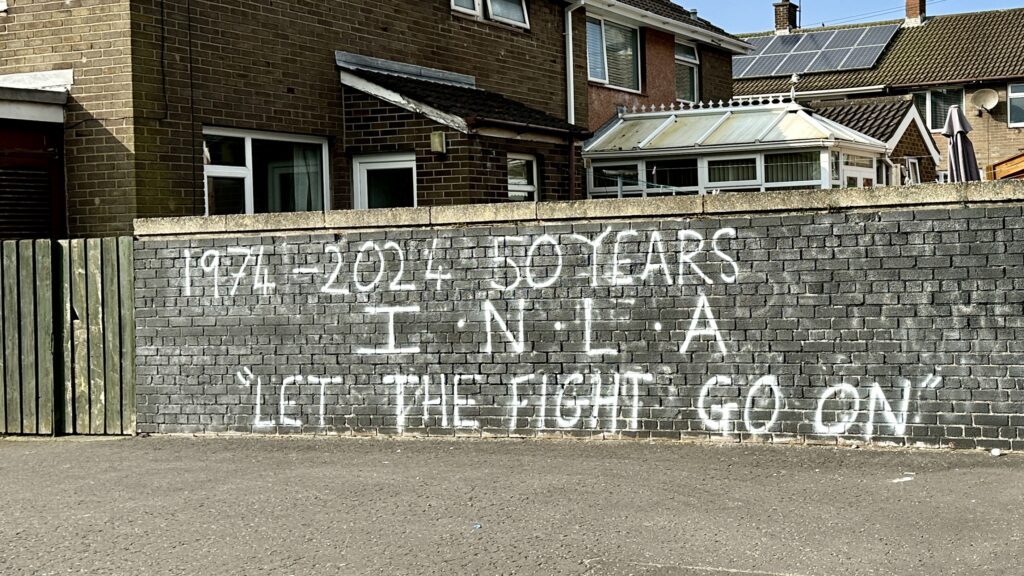 1974-2024 50 YEARS
I.N.L.A
"LET THE FIGHT GO ON"